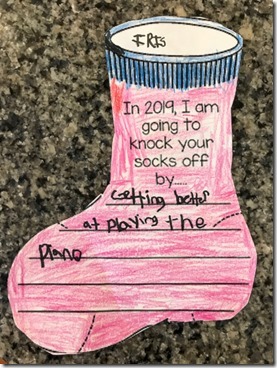 IRIS
In 2019, I am
going to
knock your
socks off
by.....
Getting better
at playing the
piano